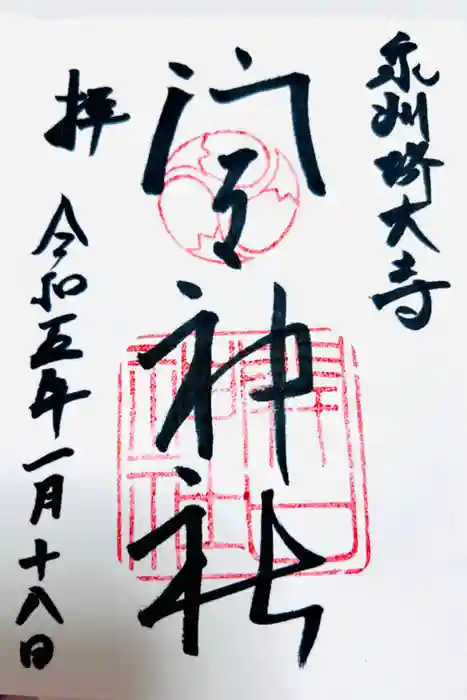 泉州堺大寺
開口神社
拝
令和五年一月十八日